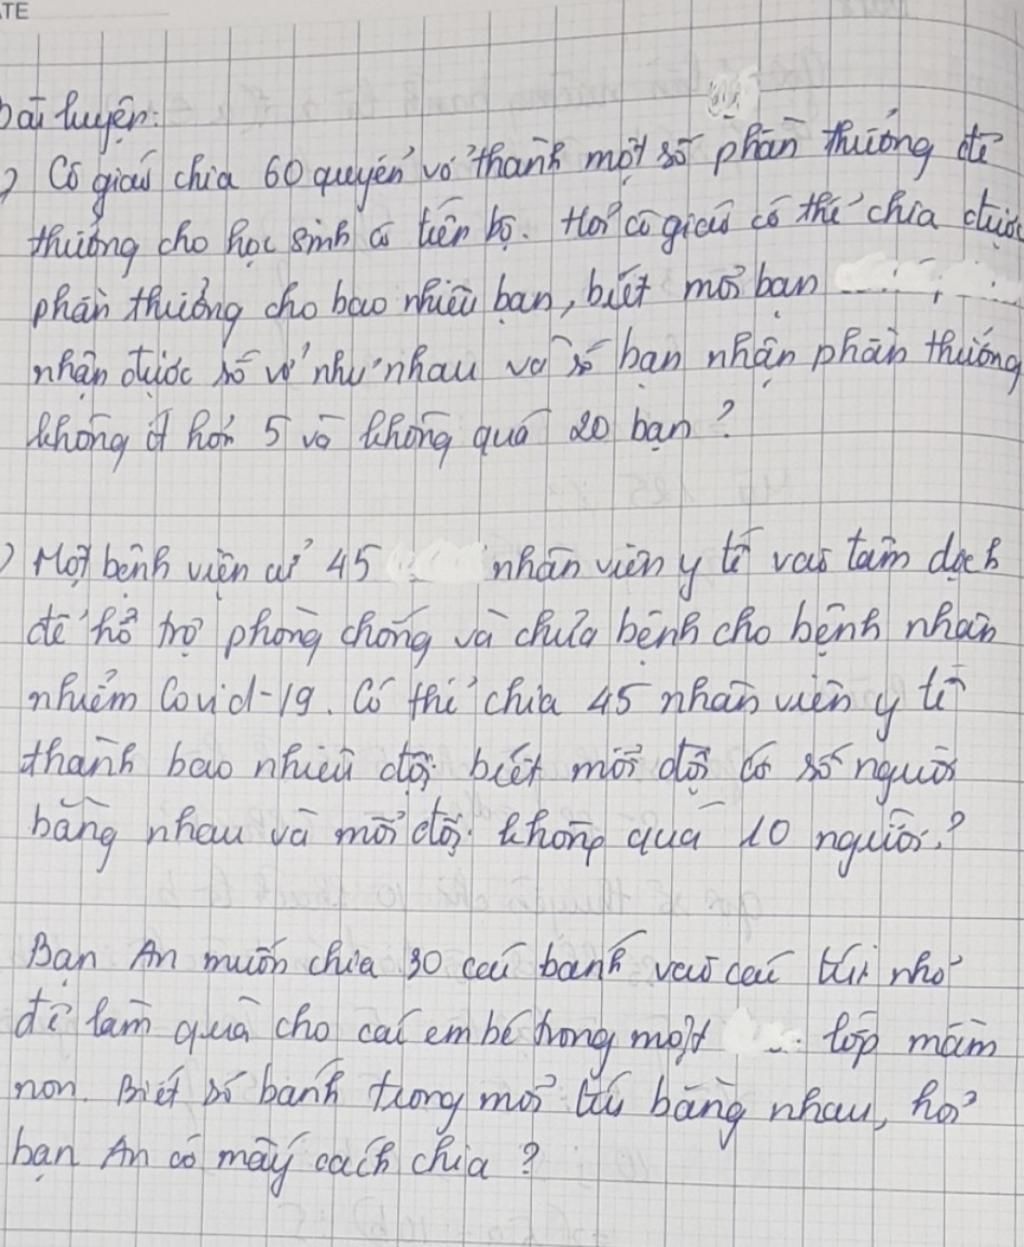 TE
Bài luyện:
) Cô giáo chia 60 quyển vở thành một số phần thưởng để
thưởng cho học sinh có tiến bộ. Hỏi cô giáo có thể chia được
phần thưởng cho bao nhiêu bạn, biết mỗi bạn
nhận được số vở như nhau và số bạn nhận phần thưởng
không ít hơn 5 và không quá 20 bạn?
) Một bệnh viện cử 45 nhân viên y tế vào tâm dịch
để hỗ trợ phòng chống và chữa bệnh cho bệnh nhân
nhiễm Covid-19. Có thể chia 45 nhân viên y tế
thành bao nhiêu đội biết mỗi đội có số người
bằng nhau và mỗi đội không quá 10 người?
Bạn An muốn chia 30 cái bánh vào các túi nhỏ
để làm quà cho các em bé trong một lớp mầm
non. Biết số bánh trong mỗi túi bằng nhau, hỏi
bạn An có mấy cách chia?